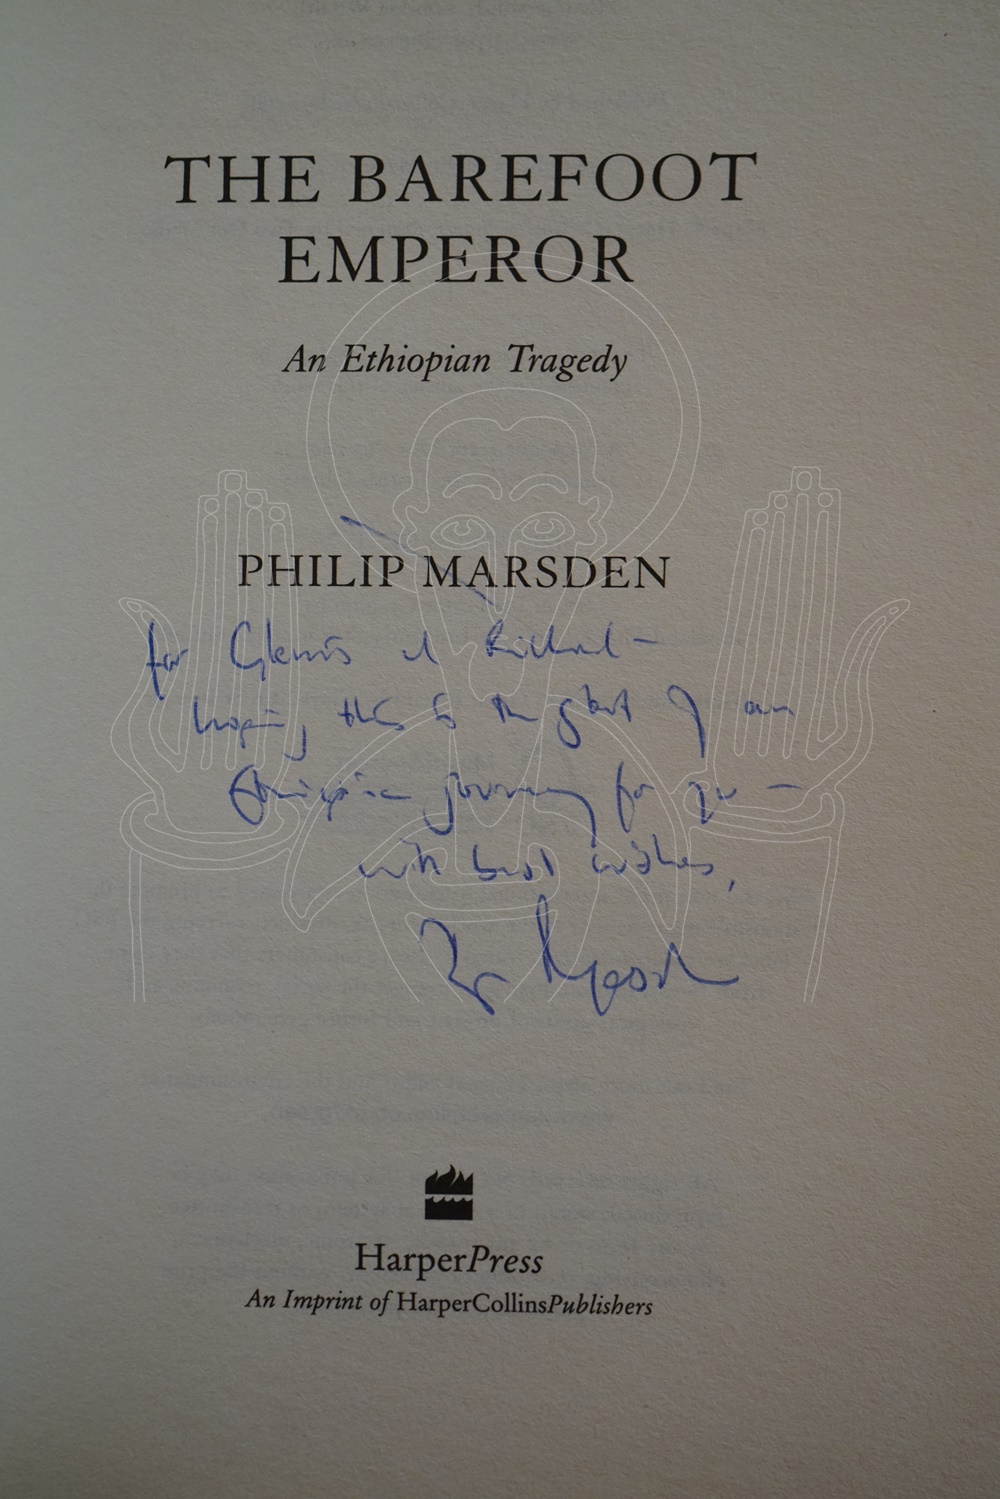 THE BAREFOOT
EMPEROR
An Ethiopian Tragedy
PHILIP MARSDEN
for Glennis & Richard –
hoping this is the start of an
Ethiopian journey for you –
with best wishes,
HarperPress
An Imprint of HarperCollinsPublishers